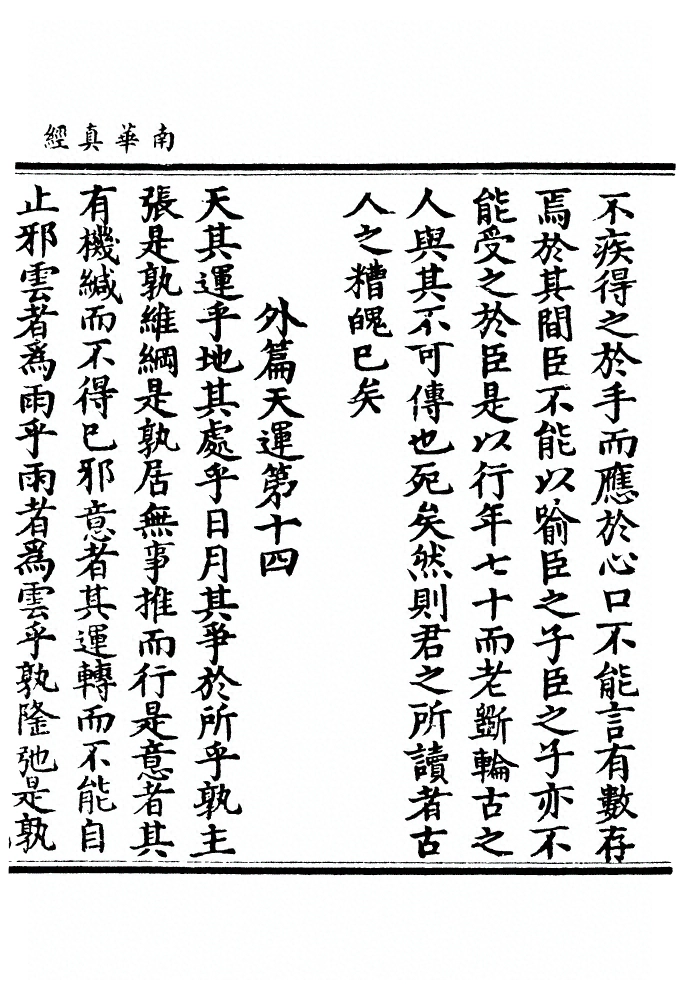 南華真經
不疾得之於手而應於心口不能言有數存
焉於其間臣不能以喻臣之子臣之子亦不
能受之於臣是以行年七十而老斵輪古之
人與其不可傳也死矣然則君之所讀者古
人之糟魄已矣
外篇天運第十四
天其運乎地其處乎日月其爭於所乎孰主
張是孰維綱是孰居無事推而行是意者其
有機緘而不得已邪意者其運轉而不能自
止邪雲者為雨乎雨者為雲乎孰隆弛是孰